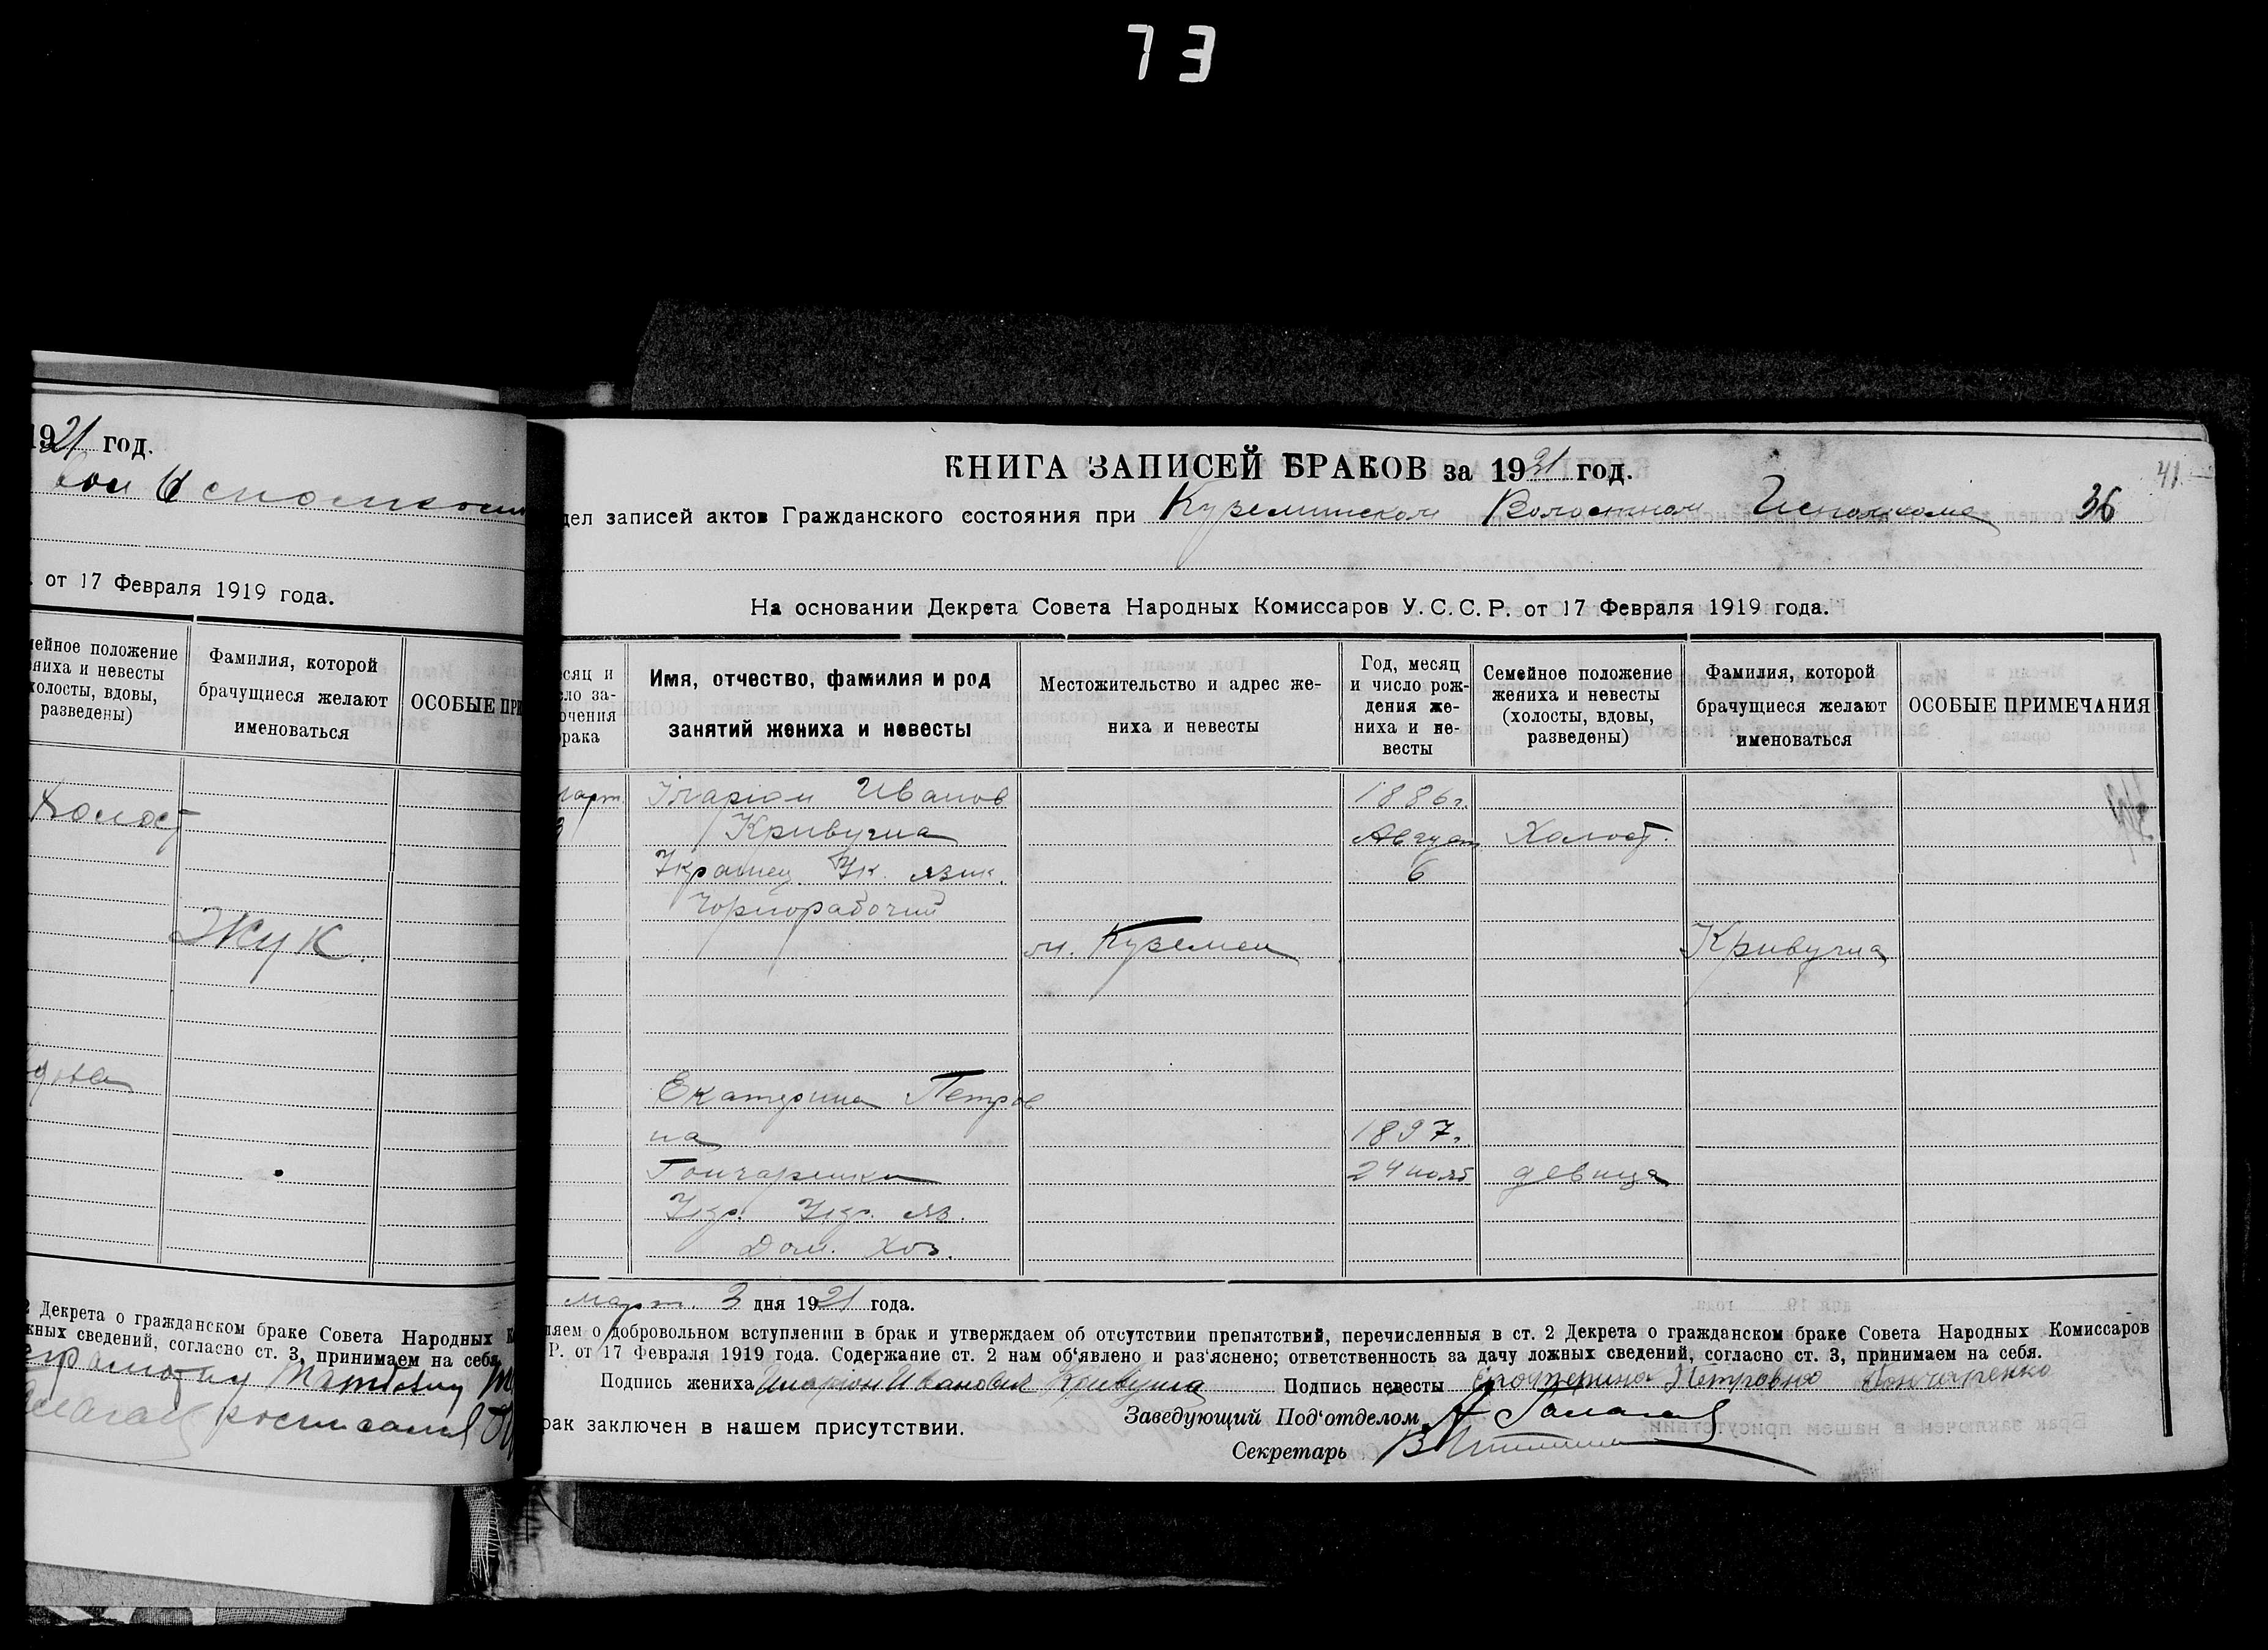 73
1921 год.
от 17 Февраля 1919 года.
мейное положение
ниха и невесты
холосты, вдовы,
разведены)
Фамилия, которой
брачущиеся желают
именоваться
ОСОБЫЕ ПРИ
Холост
Жук.
Декрета о гражданском браке Совета Народных К
жных сведений, согласно ст. 3, принимаем на себя
КНИГА ЗАПИСЕЙ БРАКОВ за 1921 год.
41
дел записей актов Гражданского состояния при Куземинском Волостном Исполкоме 36
На основании Декрета Совета Народных Комиссаров У.С.С.Р. от 17 Февраля 1919 года.
есяц и
сло за-
ючения
брака
Имя, отчество, фамилия и род
занятий жениха и невесты
Местожительство и адрес же-
ниха и невесты
Год, месяц
и число рож-
дения же-
ниха и не-
весты
Семейное положение
жениха и невесты
(холосты, вдовы,
разведены)
Фамилия, которой
брачущиеся желают
именоваться
ОСОБЫЕ ПРИМЕЧАНИЯ
март. Іларіон Иванов 1886 г.
3 Кривучка Август Холост.
Украинец. Ук. язык. 6
Чорнорабочий
м. Куземен Кривучка
Екатерина Петров
на 1897 г.
Гончаренко 24 нояб девица
Укр. Укр. яз.
Дом. Хоз.
март. 3 дня 1921 года.
ляем о добровольном вступлении в брак и утверждаем об отсутствии препятствий, перечисленныя в ст. 2 Декрета о гражданском браке Совета Народных Комиссаров
Р. от 17 Февраля 1919 года. Содержание ст. 2 нам об'явлено и раз'яснено; ответственность за дачу ложных сведений, согласно ст. 3, принимаем на себя.
Подпись жениха Иларион Иванович Кривучка Подпись невесты Екатерина Петровна Гончаренко
рак заключен в нашем присутствии.
Заведующий Под'отделом
Секретарь